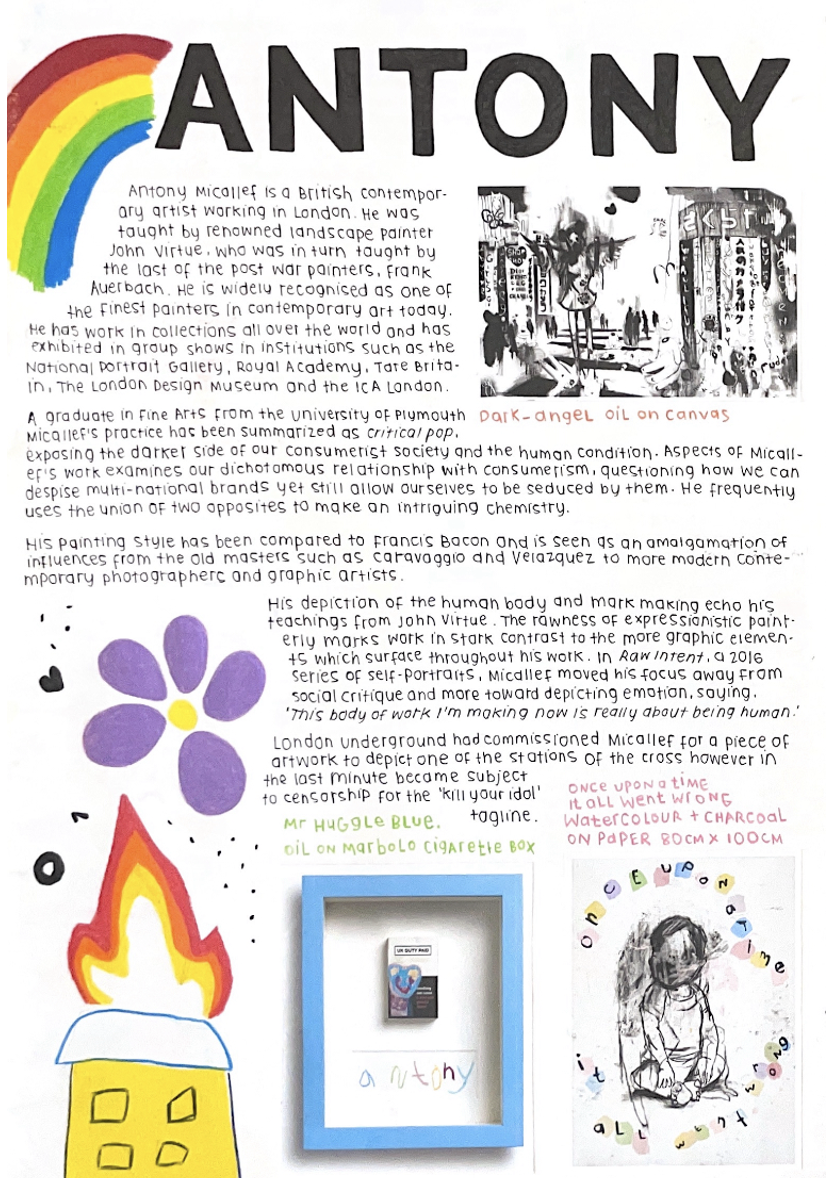 ANTONY
Antony Micallef is a British contempor-
ary artist working in London. He was
taught by renowned landscape painter
John Virtue, who was in turn taught by
the last of the post war painters, Frank
Auerbach. He is widely recognised as one of
the finest painters in contemporary art today.
He has work in collections all over the world and has
exhibited in group shows in institutions such as the
National Portrait Gallery, Royal Academy, Tate Brita-
in, The London Design Museum and the ICA London.
Dark-angel oil on canvas
A graduate in Fine Arts from the University of Plymouth
Micallef's practice has been summarized as critical pop,
exposing the darker side of our consumerist society and the human condition. Aspects of Micall-
ef's work examines our dichotomous relationship with consumerism, questioning how we can
despise multi-national brands yet still allow ourselves to be seduced by them. He frequently
uses the union of two opposites to make an intriguing chemistry.
His painting style has been compared to Francis Bacon and is seen as an amalgamation of
influences from the old masters such as Caravaggio and Velazquez to more modern conte-
mporary photographers and graphic artists.
His depiction of the human body and mark making echo his
teachings from John Virtue. The rawness of expressionistic paint-
erly marks work in stark contrast to the more graphic elemen-
ts which surface throughout his work. In Raw Intent, a 2016
series of self-portraits, Micallef moved his focus away from
social critique and more toward depicting emotion, saying,
'This body of work I'm making now is really about being human.'
London underground had commissioned Micallef for a piece of
artwork to depict one of the stations of the cross however in
the last minute became subject
to censorship for the 'kill your idol'
tagline.
Mr Huggle Blue.
oil on Marbolo cigarette box
once upon a time
it all went wrong
Watercolour + CHARCOAL
ON PAPER 80CM X 100CM
UK DUTY PAID
antony
once upon a time
it all went wrong